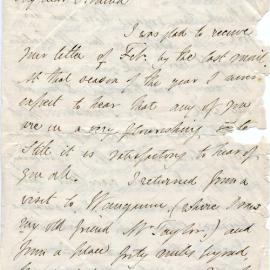 I was glad to receive
your letter of Feb. by the last mail.
At that season of the year I never
expect to hear that any of you
are in a very flourishing state
Still it is satisfactory to hear of
you all. I returned from a
visit to Wanganui (where lives
my old friend Mr Taylor) and
from a place forty miles beyond,